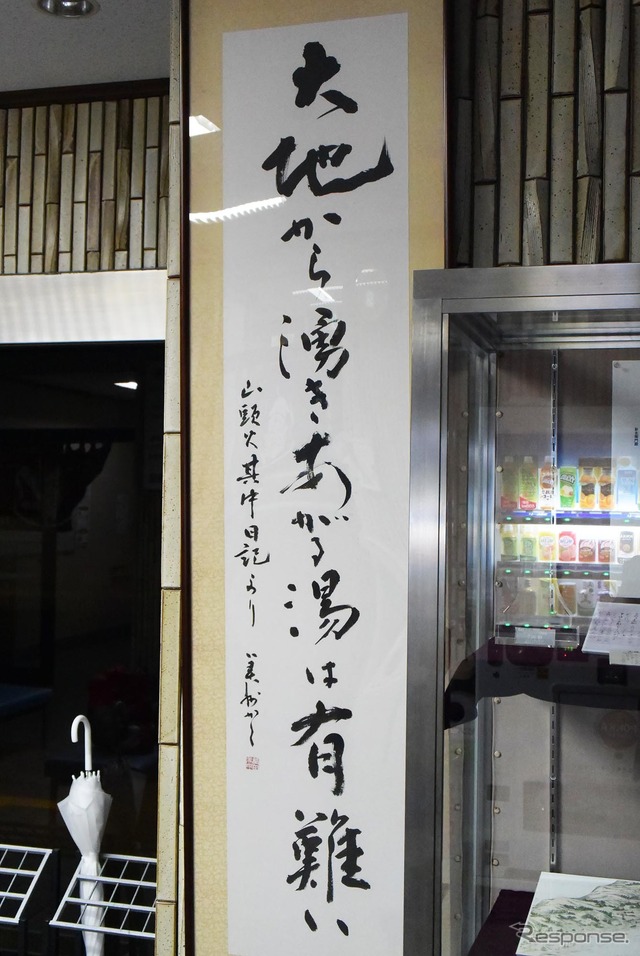 大地から湧きあがる湯は有難い
山頭火其中日記より
Response.